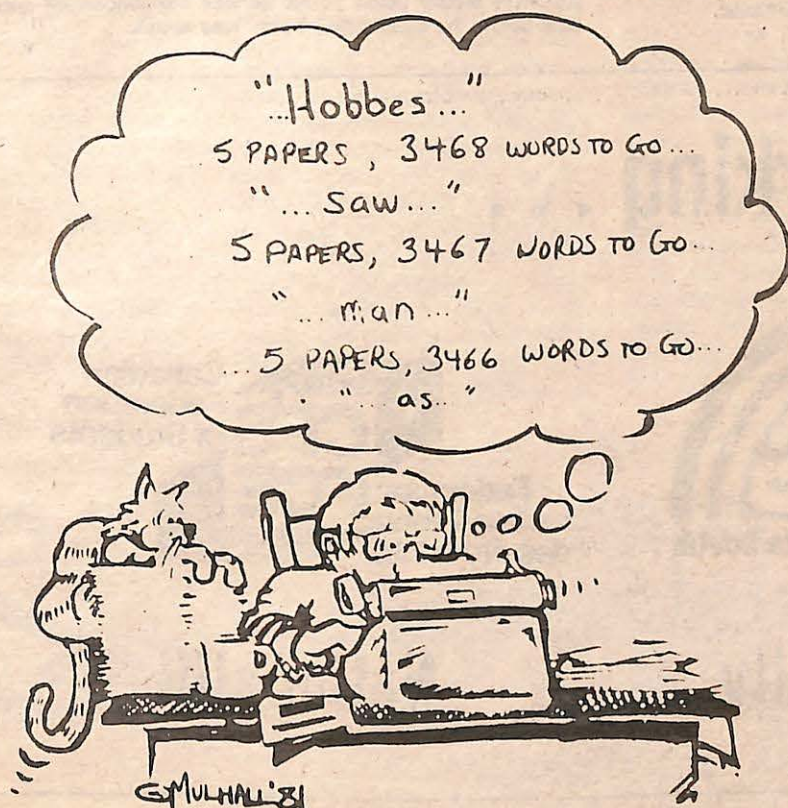 "...Hobbes..."
5 PAPERS, 3468 WORDS TO GO...
"... saw..."
5 PAPERS, 3467 WORDS TO GO...
"... man ..."
...5 PAPERS, 3466 WORDS TO GO...
"... as..."
G MULHALL '81